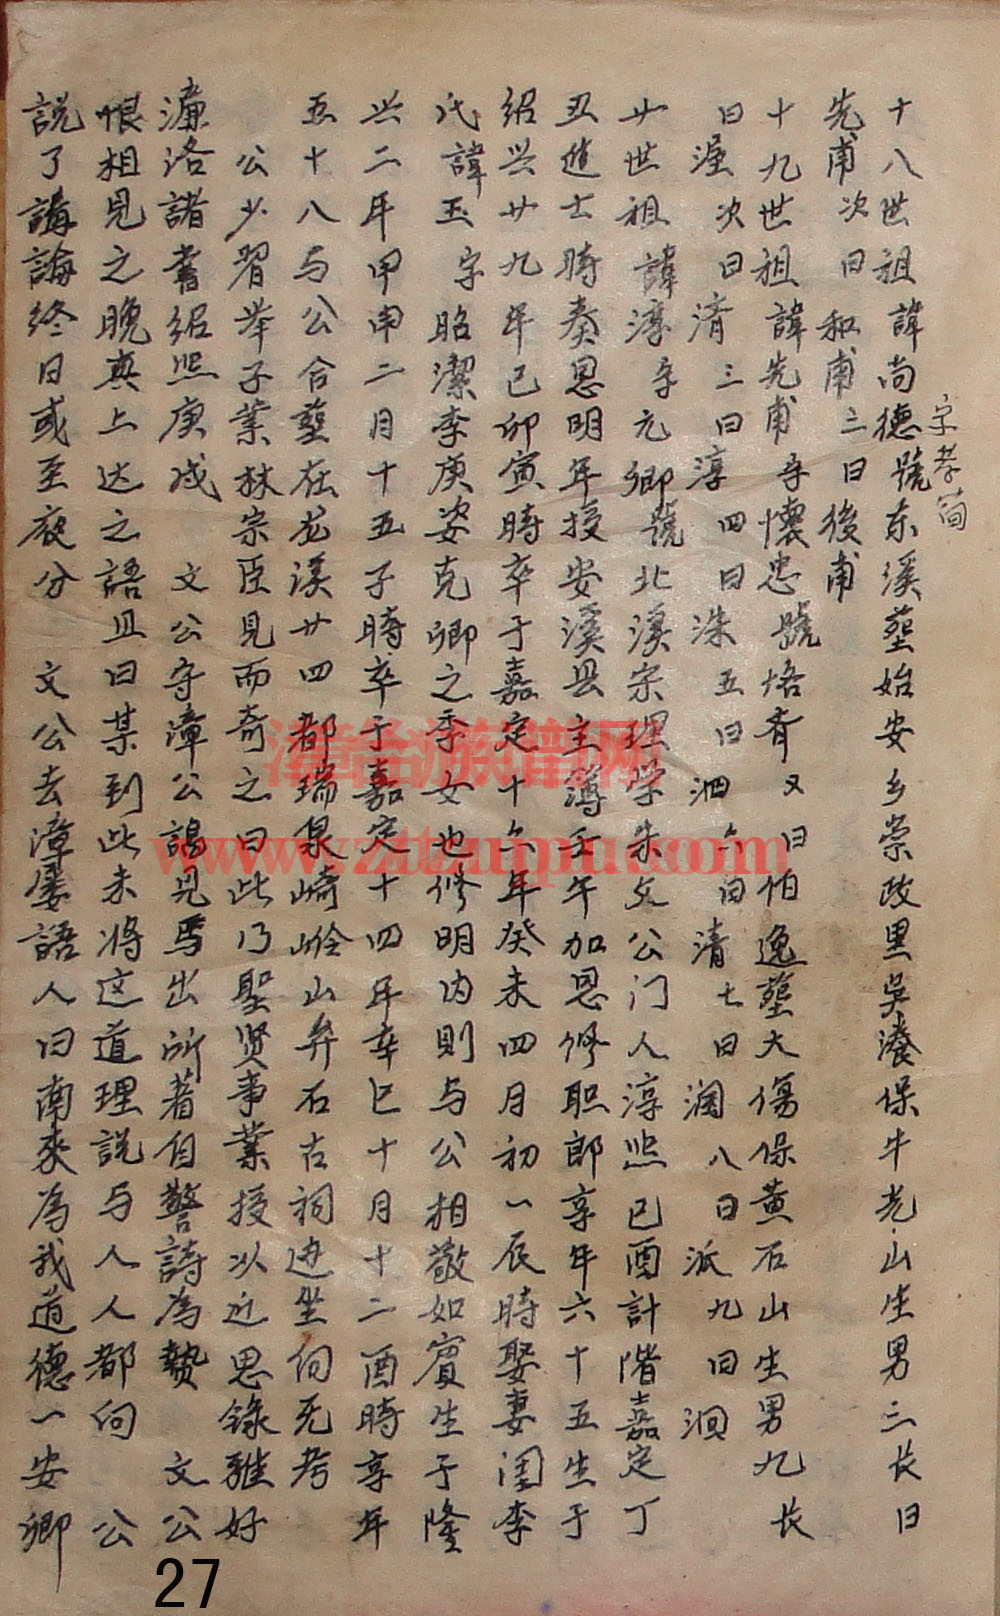 字孝简
十八世祖諱尚德號东溪塟始安乡崇政里吳濠保牛羌山生男三长曰
先甫次曰和甫三曰後甫
十九世祖諱先甫字懷忠號恪斉又曰伯逸塟大傷保黄石山生男九长
曰渥次曰清三曰淳四曰洙五曰泗六曰清七曰润八曰派九曰洄
廿世祖諱淳字元卿號北溪宗理学朱文公门人淳熙已酉計階嘉定丁
丑進士時奏恩明年授安溪县主簿壬午加恩修职郎享年六十五生于
绍兴廿九年己卯寅時卒于嘉定十六年癸未四月初一辰時娶妻闺李
氏諱玉字昭潔李庚姿克卿之季女也修明内則与公相敬如賓生于隆
兴二年甲申二月十五子時卒于嘉定十四年辛巳十月十二酉時享年
五十八与公合塟在龙溪廿四都瑞泉崎嶺山弁石古祠边坐向无考
公少習举子業林宗臣見而奇之曰此乃聖贤事業授以近思錄雅好
濂洛諸書绍熙庚戌 文公守漳公謁見焉出所着自警詩為贄 文公
恨相見之晚真上达之語且曰某到此未将这道理説与人人都向 公
説了講論终日或至夜分 文公去漳屡語人曰南來為我道德一安卿
漳台族譜网
www.ztzupu.com
27